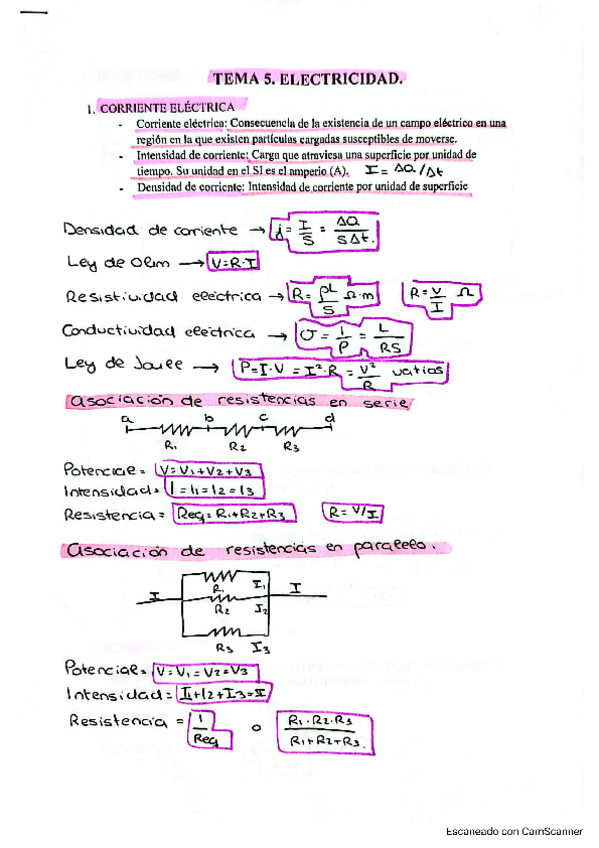 TEMA 5. ELECTRICIDAD.
1. CORRIENTE ELÉCTRICA
- Corriente eléctrica: Consecuencia de la existencia de un campo eléctrico en una
región en la que existen partículas cargadas susceptibles de moverse.
- Intensidad de corriente: Carga que atraviesa una superficie por unidad de
tiempo. Su unidad en el SI es el amperio (A). I = ΔQ/Δt
- Densidad de corriente: Intensidad de corriente por unidad de superficie
Densidad de corriente → j = I/S = ΔQ/SΔt.
Ley de Ohm → V=R·I
Resistividad eléctrica → R = ρL/S Ω·m R = V/I Ω
Conductividad eléctrica → σ = 1/ρ = L/RS
Ley de Joule → P=I·V = I²·R = V²/R vatios
Asociación de resistencias en serie
a b c d
R1 R2 R3
Potencial = V=V1+V2+V3
Intensidad = I=I1=I2=I3
Resistencia = Req=R1+R2+R3 R=V/I
Asociación de resistencias en paralelo.
I R1 I1 I
R2 I2
R3 I3
Potencial = V=V1=V2=V3
Intensidad = I1+I2+I3=I
Resistencia = 1/Req o R1·R2·R3/R1+R2+R3.
Escaneado con CamScanner